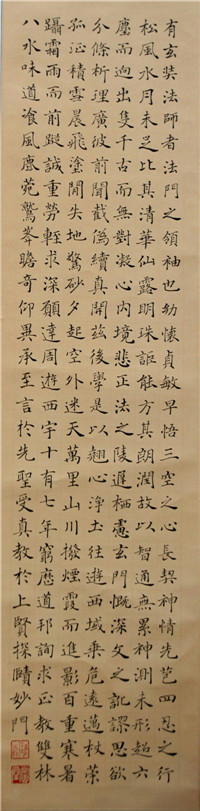 有玄奘法師者法門之領袖也幼懷貞敏早悟三空之心長契神情先苞四忍之行
松風水月未足比其清華仙露明珠詎能方其朗潤故以智通無累神測未形超六
塵而迥出隻千古而無對凝心內境悲正法之陵遲栖慮玄門慨深文之訛謬思欲
分條析理廣彼前聞截偽續真開茲後學是以翹心淨土往遊西域乘危遠邁杖策
孤征積雪晨飛塗間失地驚砂夕起空外迷天萬里山川撥煙霞而進影百重寒暑
躡霜雨而前蹤誠重勞輕求深願達周遊西宇十有七年窮歷道邦詢求正教雙林
八水味道飡風鹿菀鷲峯瞻奇仰異承至言於先聖受真教於上賢探賾妙門